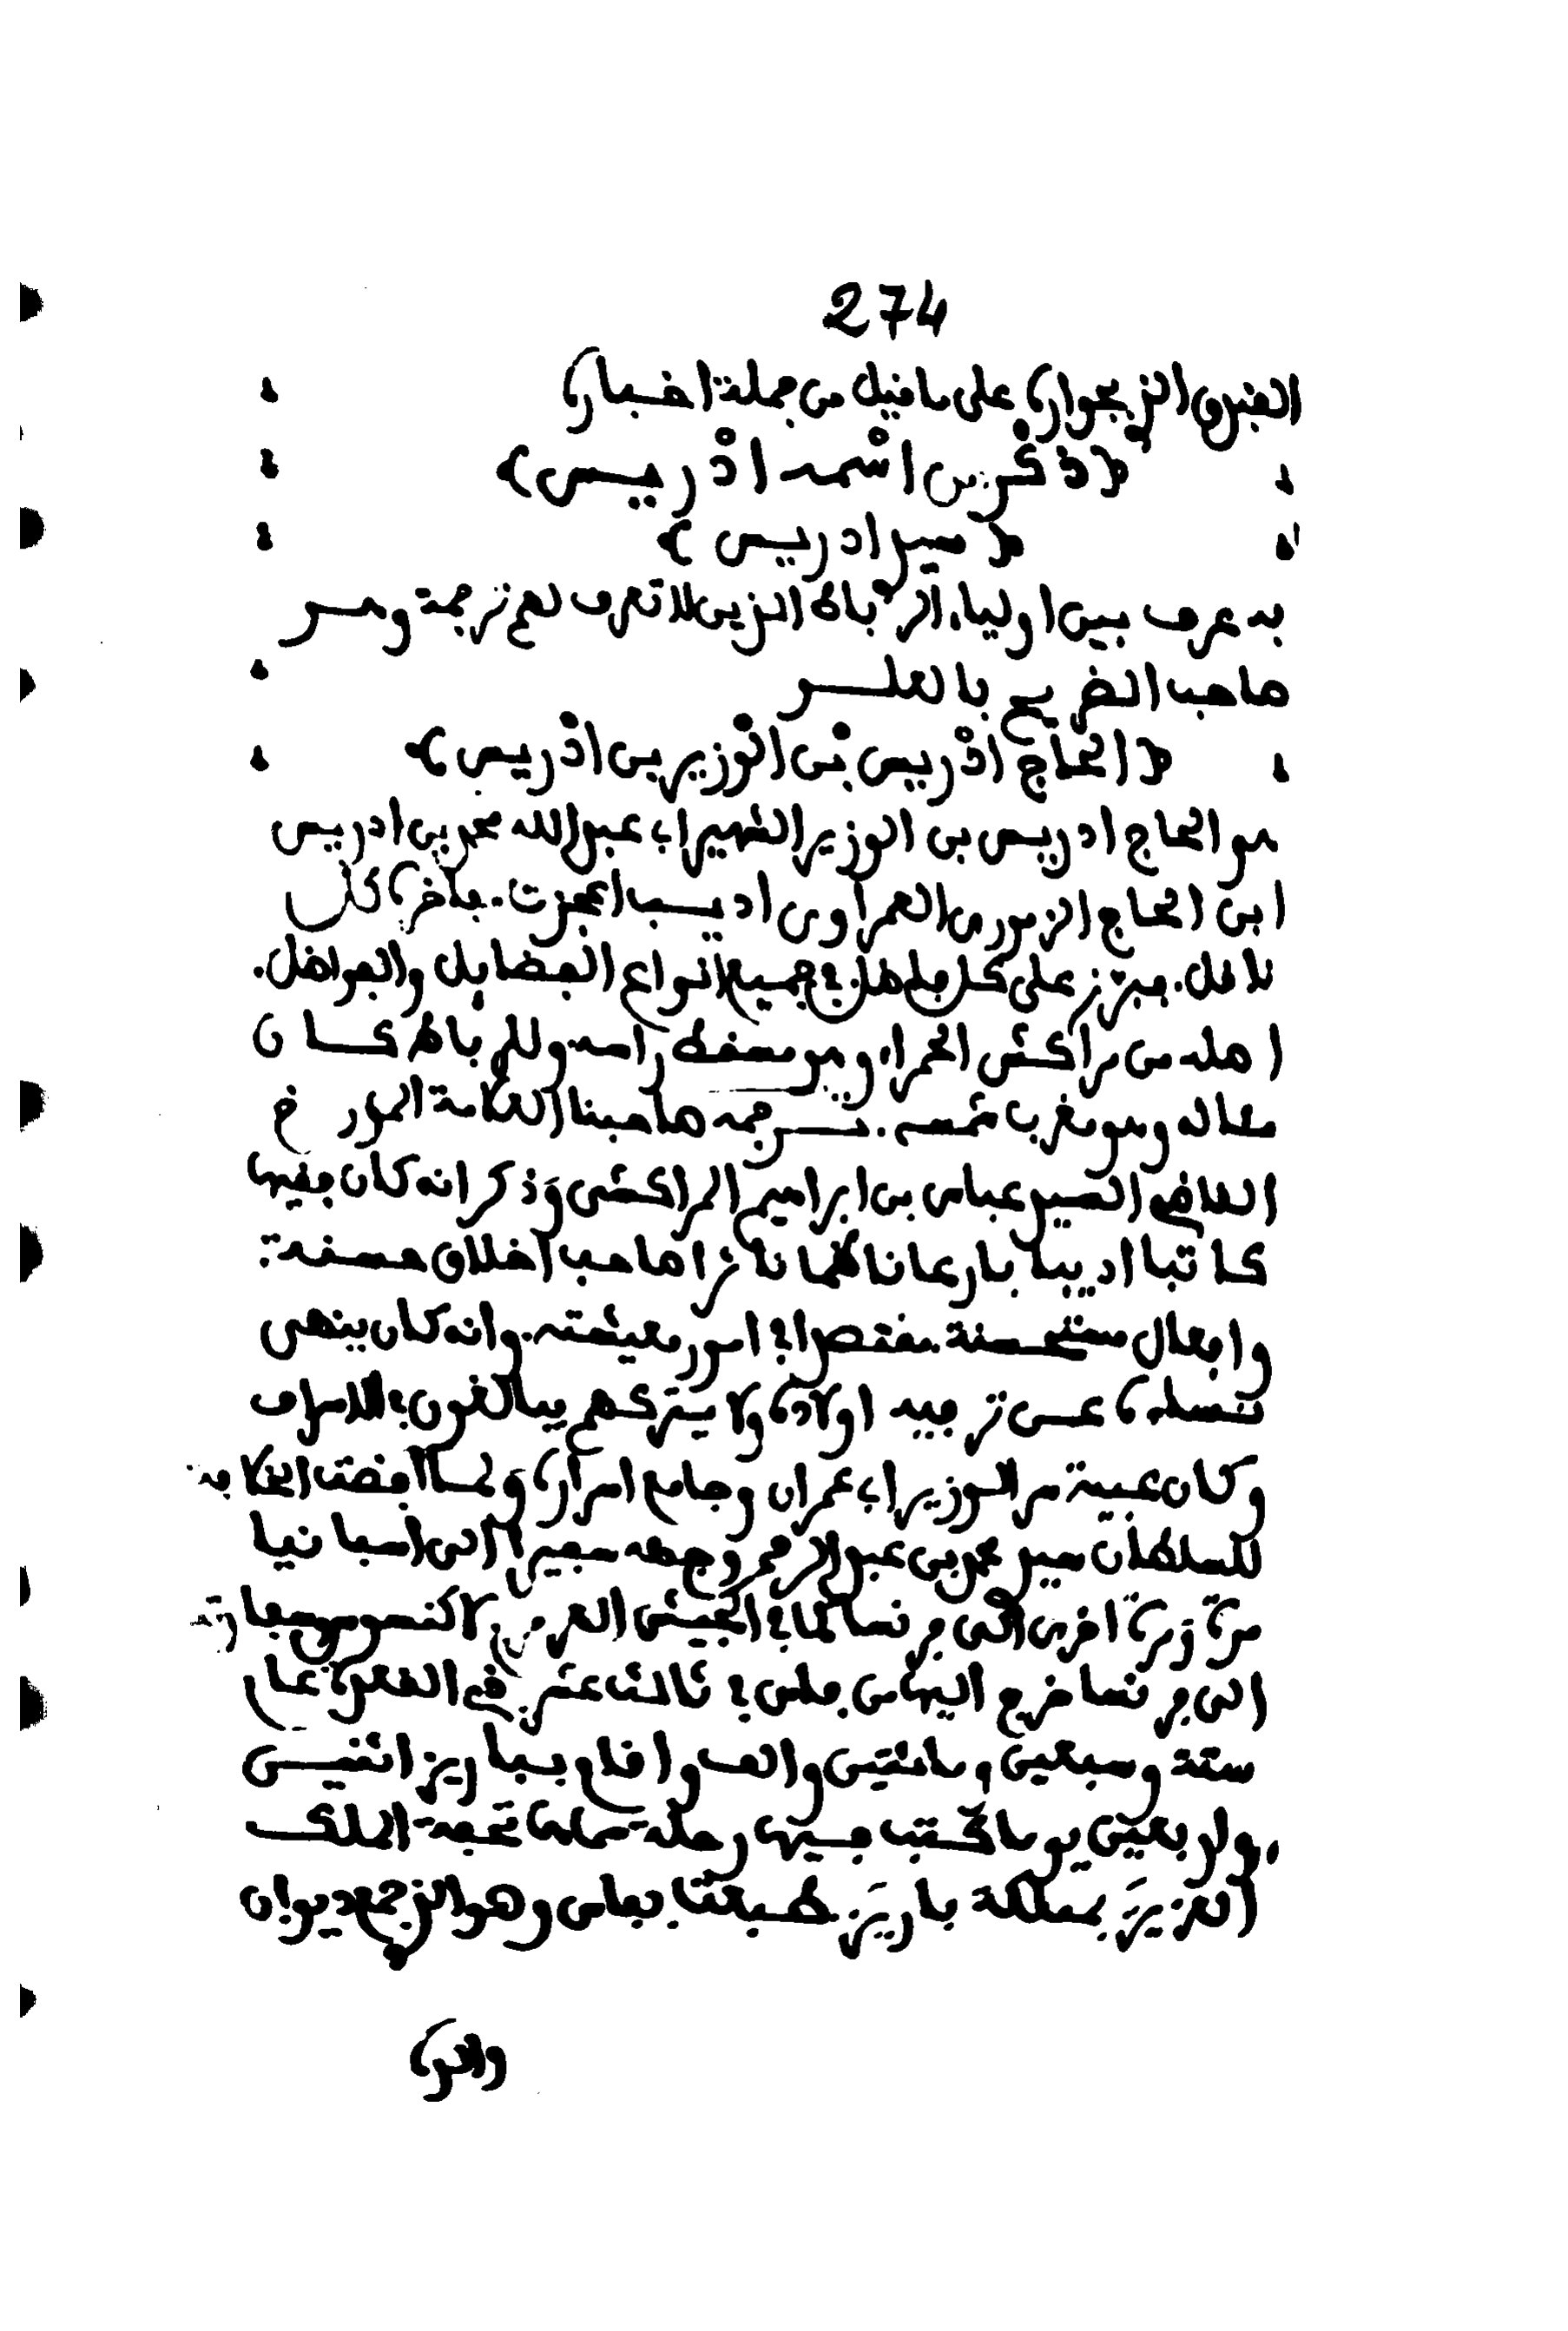 274
الفندق الذي بجواره على ما قيل من جملة اخباره
﴿ ذكر من اسمه ادريس ﴾
﴿ سيدي ادريس ﴾
به عرف بين اولياء الرباط الذين لا تعرف لهم ترجمة وهو
صاحب الضريح بالعلو
﴿ الحاج ادريس بن الوزير بن ادريس ﴾
هو الحاج ادريس بن الوزير الشهير ابي عبد الله محمد بن ادريس
ابن الحاج الزموري العمراوي اديب اعجزت مفاخره كل
ناقل. مبرز على كل فاضل في جميع انواع الفضائل والفواضل.
اصله من مراكش الحمراء وهو مسقط راسه وللرباط كان
مثاله وهو مغرب شمسه. ترجمه صاحبنا العلامة المؤرخ
القاضي السيد عباس بن ابراهيم المراكشي وذكر انه كان فقيها
كاتبا اديبا بارعا ناظما ناثرا صاحب اخلاق حسنة
وافعال مستحسنة مقتصدا في امور معيشته. وانه كان ينهى
عن ترفيه اولاده ولا يتركهم يبالغون في الاسراف
وكان عيبة سر الوزير ابي عمران وجامع اسراره ولما افضت الخلافة
للسلطان سيدي محمد بن عبد الرحمن وجهه سفيرا الى اسبانيا
مرة ومرة اخرى الى فرنسا لما في الجيش العرمرم لاكنسوس سفارته
الى فرنسا خرج اليها من فاس في ثالث عشر قعدة عام
ستة وسبعين ومائتين والف واقام بباريز اثنين
واربعين يوما كتب فيها رحلة سماها تحفة الملك
العزيز بمملكة باريز طبعت بفاس وهو الذي جمع ديوان
والده